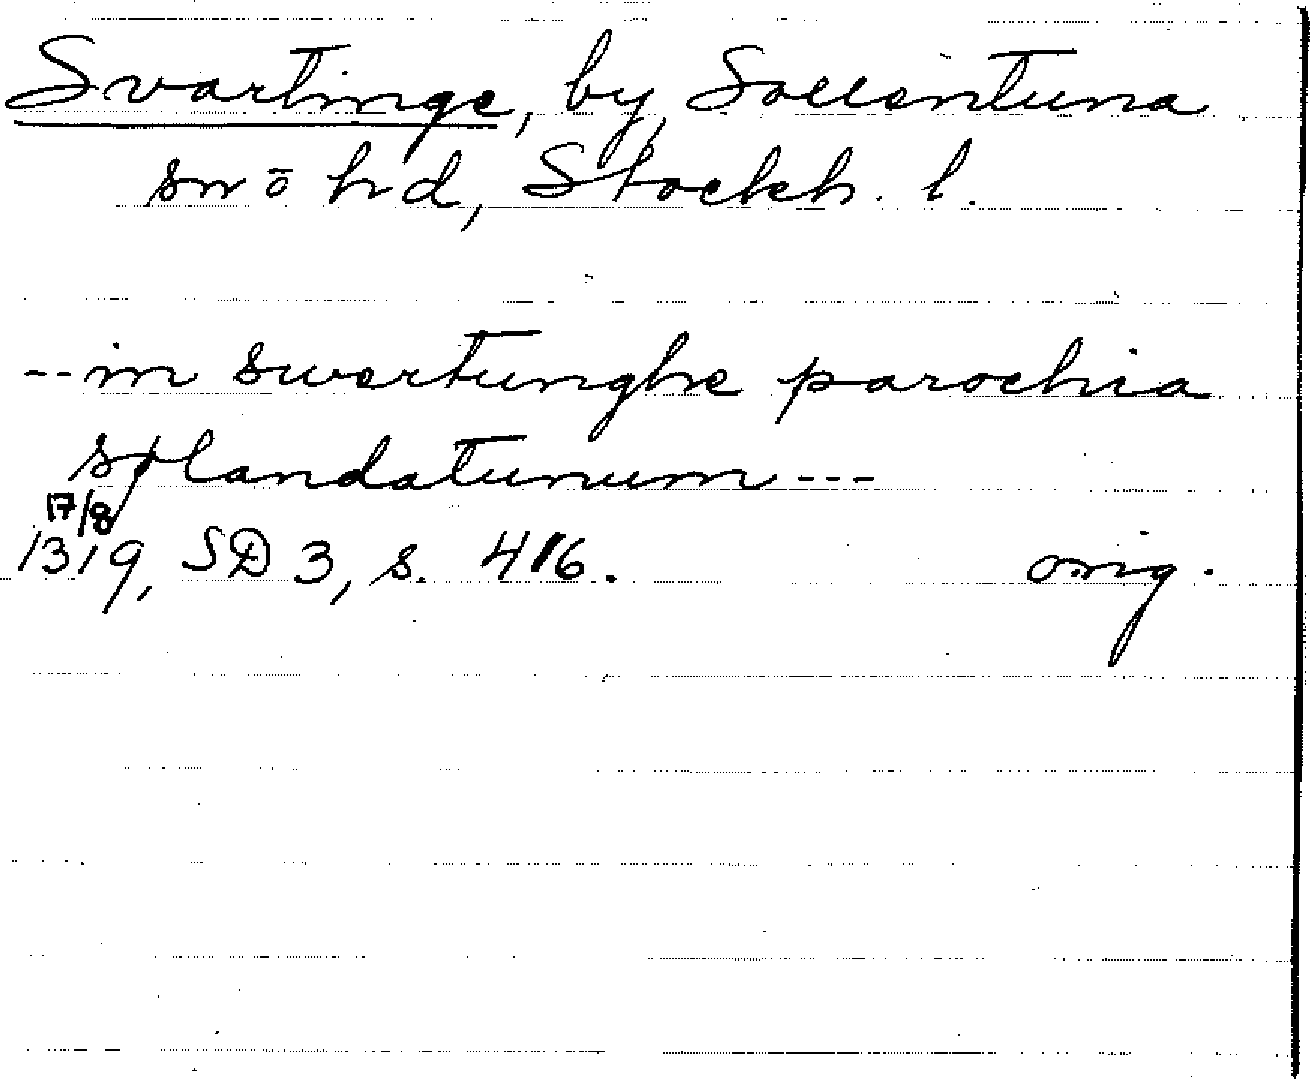 Svartinge, by, Sollentuna
sn o hd, Stockh. l.
-- in swartunghe parochia
solandatunum ---
17/8
1319, SD 3, s. 416. orig.